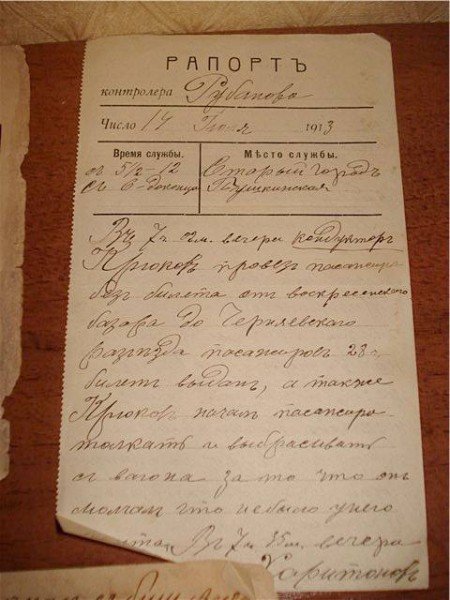 РАПОРТЪ
контролера Рубанова
Число 14 Июля 1913
Время службы.
Мѣсто службы.
съ 5½ - 12
Старый городъ
съ 6 -
Пушкинская
Въ 7 ч. вечера кондукторъ
Крюковъ провез пассажира
без билета от воскресенскаго
базара до Черняевского
разъѣзда пасажиров 28
билет выдан, а также
Крюковъ начал пасажиро-
толкать и выбрасывать
с вагона за то что он
молчал что небыло у него
Въ 7 ч. 35 м. вечера
Харитоновъ